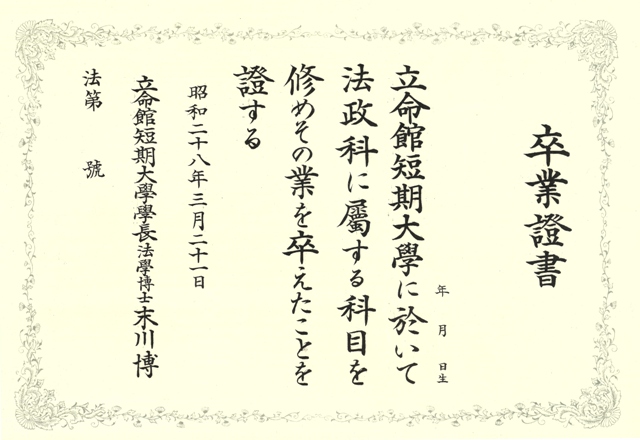 卒業證書
年 月 日生
立命館短期大學に於いて
法政科に屬する科目を
修めその業を卒えたことを
證する
昭和二十八年三月二十一日
立命館短期大學學長法學博士末川博
法第 號